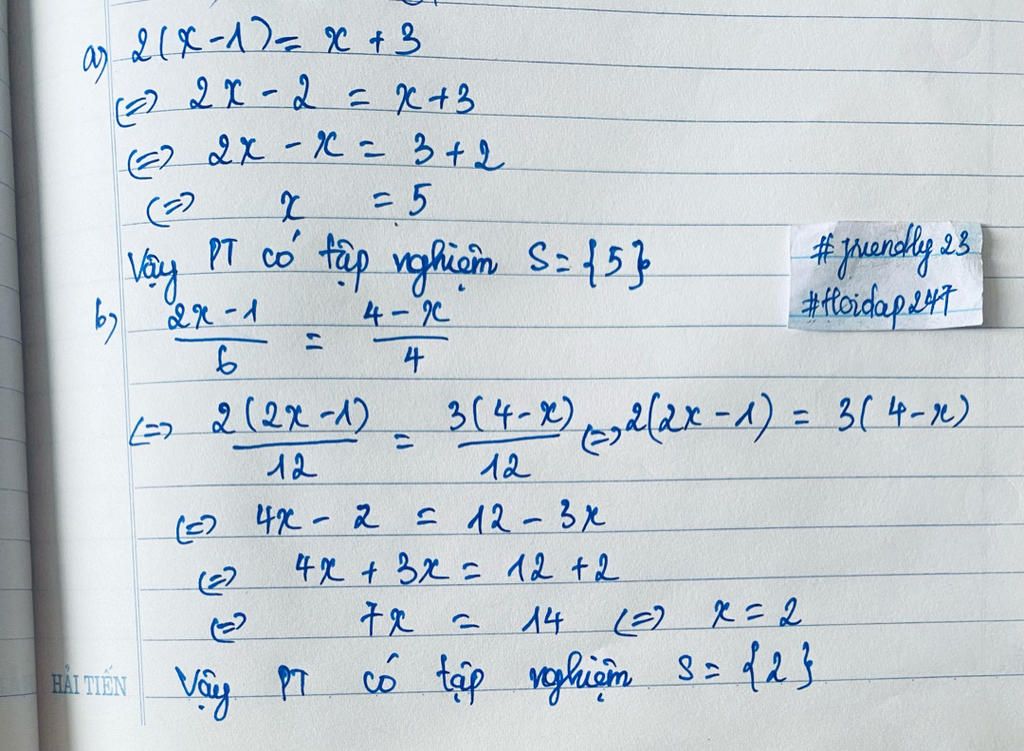 a) 2(x-1) = x + 3
(=) 2x - 2 = x + 3
(=) 2x - x = 3 + 2
(=) x = 5
Vậy PT có tập nghiệm S = {5}
#friendly23
#Hoidap247
b) (2x - 1)/6 = (4 - x)/4
(=) 2(2x - 1)/12 = 3(4 - x)/12 (=) 2(2x - 1) = 3(4 - x)
(=) 4x - 2 = 12 - 3x
(=) 4x + 3x = 12 + 2
(=) 7x = 14 (=) x = 2
Vậy PT có tập nghiệm S = {2}
HẢI TIẾN